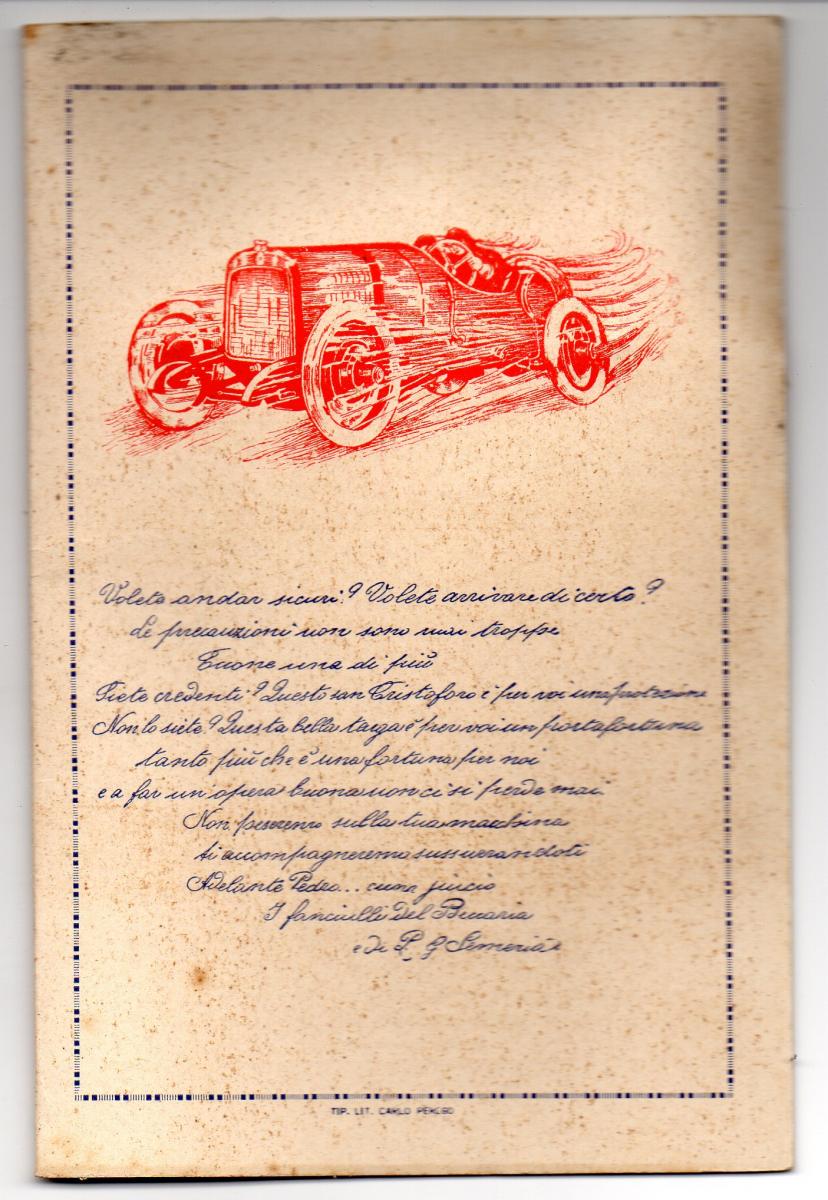 Volete andar sicuri? Volete arrivare di certo?
Le precauzioni non sono mai troppe
Tuone una di più
Siete credenti? Questo san Cristoforo è per voi una protezione
Non lo siete? Questa bella targa è per voi un portafortuna
tanto più che è una fortuna per noi
e a far un opera buona non ci si perde mai.
Non peseremo sulla tua macchina
ti accompagneremo sussurrandoti
Adelante Pedro.. cum juicio
I fanciulli del Beccaria
e di P. G. Semeria
TIP. LIT. CARLO PEREGO